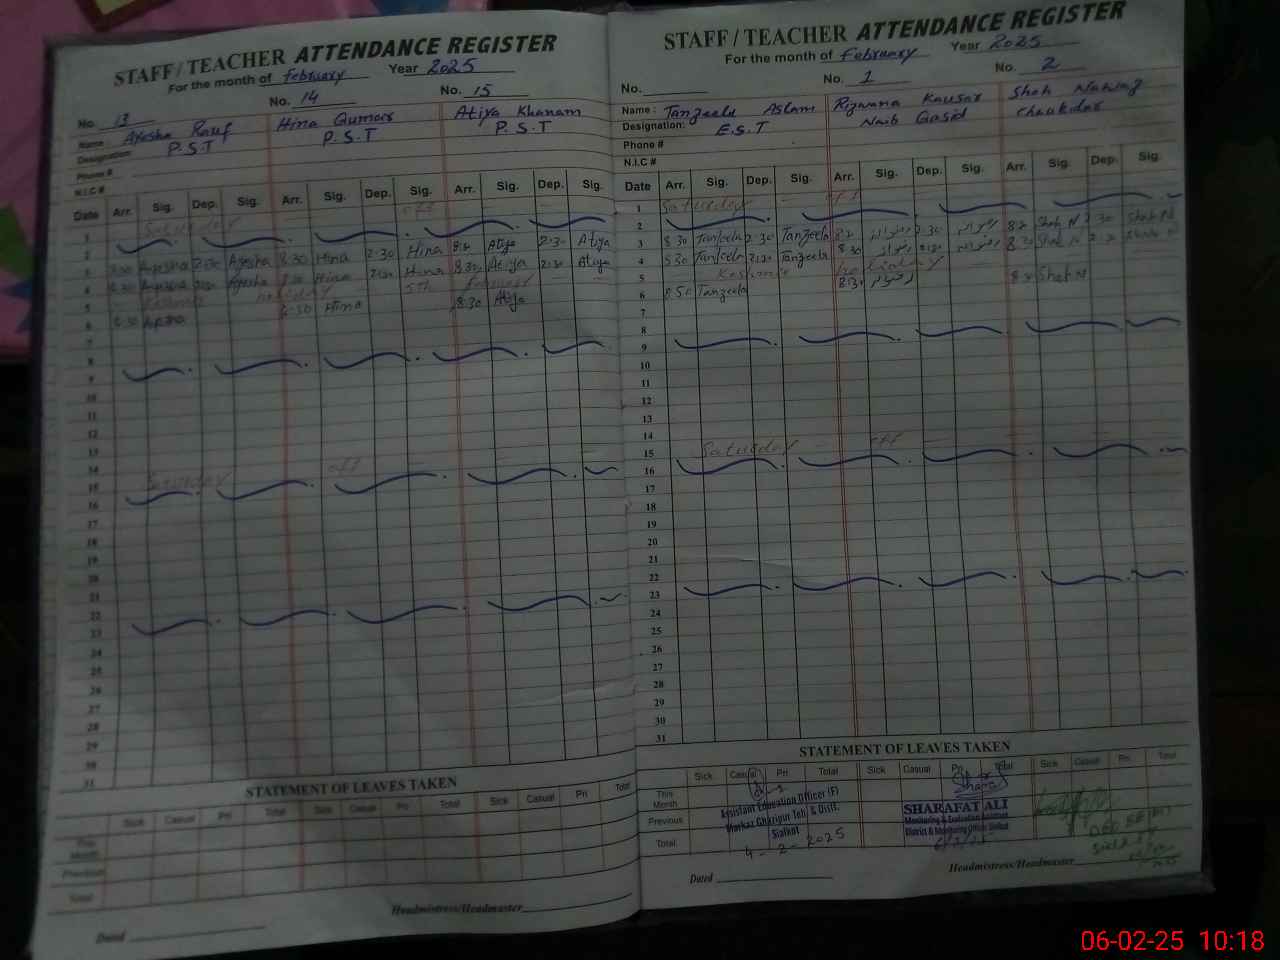 STAFF/TEACHER ATTENDANCE REGISTER
For the month of February Year 2025
No. 13 No. 14 No. 15
Name: Ayesha Rauf Hina Qumar Atiya Khanam
Designation: P.S.T P.S.T P.S.T
Phone #
N.I.C #
Date Arr. Sig. Dep. Sig. Arr. Sig. Dep. Sig. Arr. Sig. Dep. Sig.
1 Saturday off
2
3 8:30 Ayesha 2:30 Ayesha 8:30 Hina 2:30 Hina 8:30 Atiya 2:30 Atiya
4 8:30 Ayesha 2:30 Ayesha 8:30 Hina 2:30 Hina 8:30 Atiya 2:30 Atiya
5 Kashmir holiday 5th February
6 8:30 Ayesha 8:30 Hina 8:30 Atiya
7
8
9
10
11
12
13
14
15 Saturday off
16
17
18
19
20
21
22
23
24
25
26
27
28
29
30
31
STATEMENT OF LEAVES TAKEN
Sick Casual Pri Total Sick Casual Pri Total Sick Casual Pri Total
This Month
Previous
Total
Headmistress/Headmaster
Dated
STAFF/TEACHER ATTENDANCE REGISTER
For the month of February Year 2025
No. No. 1 No. 2
Name: Tanzeela Aslam Rizwana Kausar Shah Nawaz
Designation: E.S.T Naib Qasid Chaukidar
Phone #
N.I.C #
Date Arr. Sig. Dep. Sig. Arr. Sig. Dep. Sig. Arr. Sig. Dep. Sig.
1 Saturday off
2
3 8:30 Tanzeela 2:30 Tanzeela 2:30 Shah N 2:30 Shah N
4 8:30 Tanzeela 2:30 Tanzeela 8:30 2:30 Shah N
5 Kashmir holiday
6 8:30 Tanzeela 8:30 Shah N
7
8
9
10
11
12
13
14
15 Saturday off
16
17
18
19
20
21
22
23
24
25
26
27
28
29
30
31
STATEMENT OF LEAVES TAKEN
Sick Casual Pri Total Sick Casual Pri Total Sick Casual Pri Total
This Month
Previous
Total
Assistant Education Officer (F)
Markaz Gharipur Teh & Distt.
Sialkot
4-2-2025
SHARAFAT ALI
Monitoring & Evaluation Assistant
District Monitoring Officer Sialkot
6/2/25
Dated
Headmistress/Headmaster
06-02-25 10:18